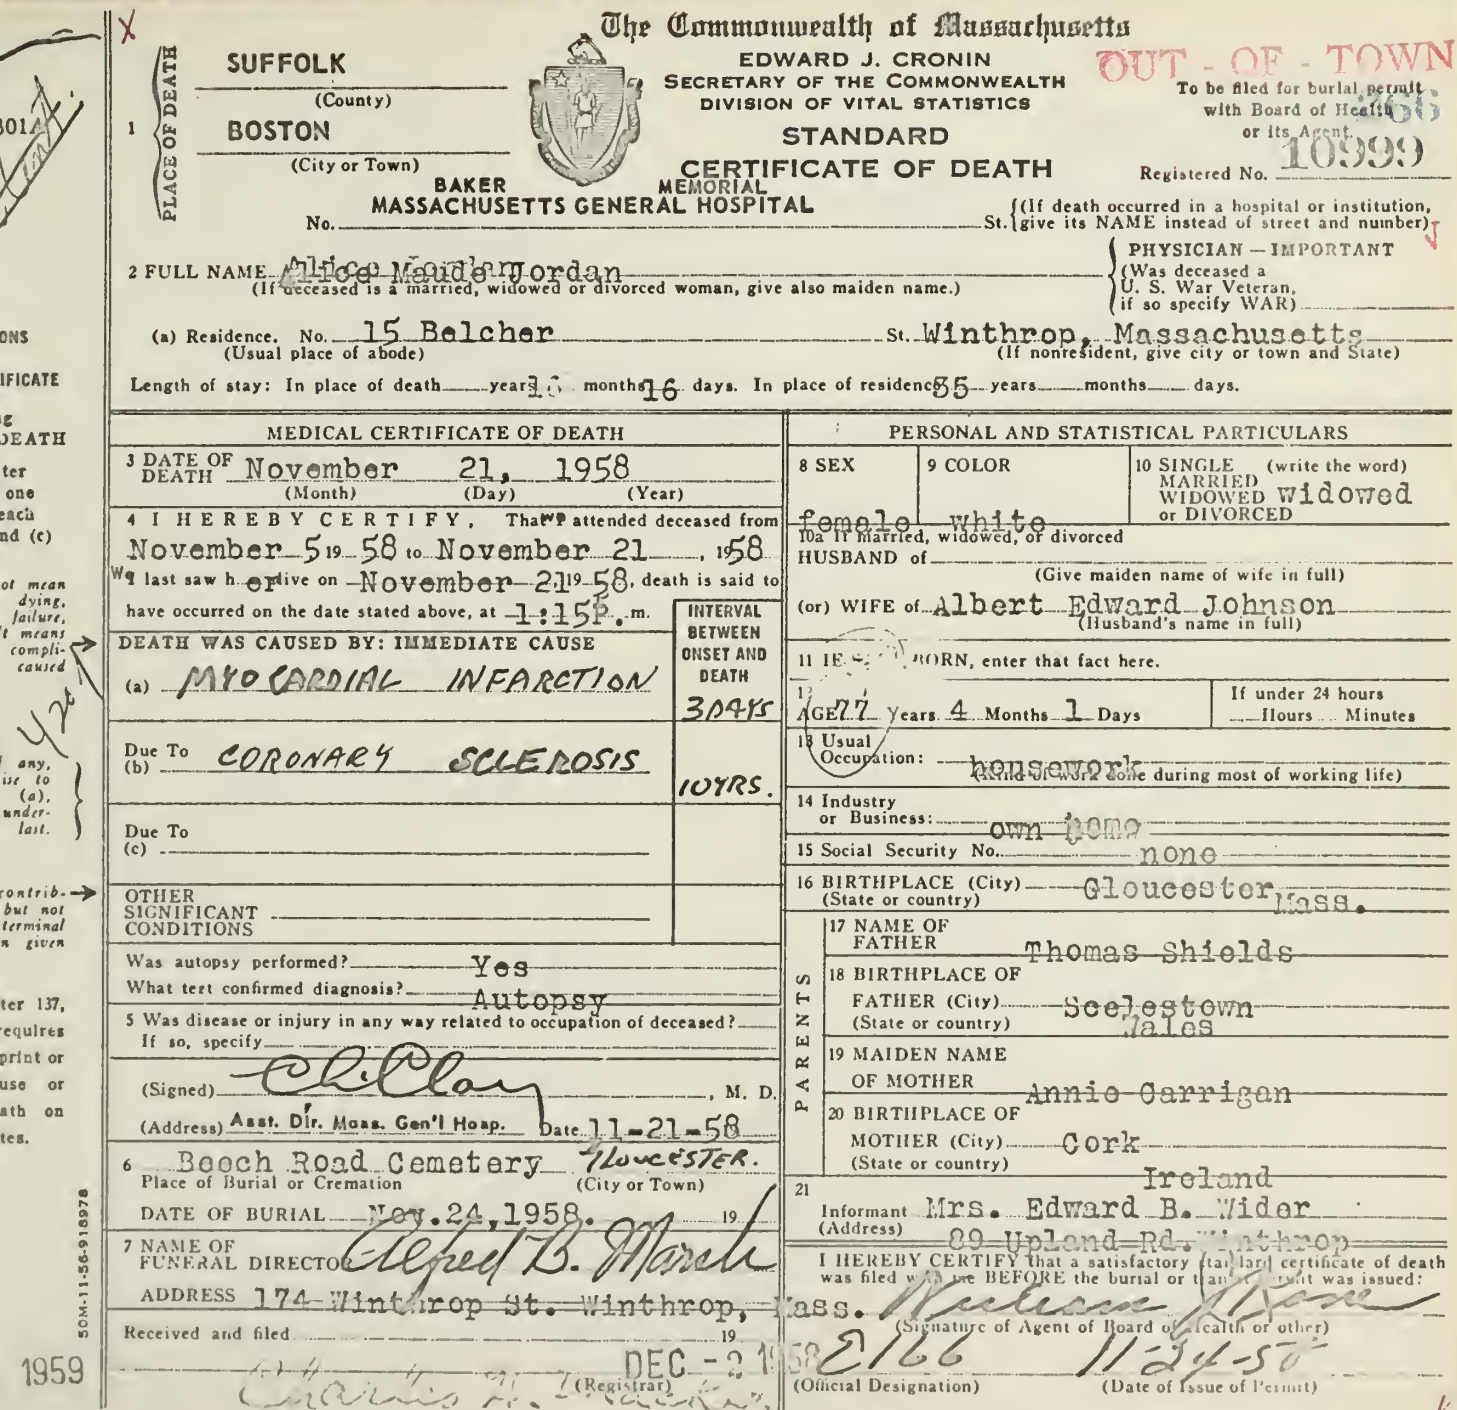 X
The Commonwealth of Massachusetts
EDWARD J. CRONIN
SECRETARY OF THE COMMONWEALTH
DIVISION OF VITAL STATISTICS
STANDARD
CERTIFICATE OF DEATH
OUT - OF - TOWN
To be filed for burial permit
with Board of Health
or its Agent.
366
10999
Registered No.
PLACE OF DEATH
1
SUFFOLK
(County)
BOSTON
(City or Town)
BAKER MEMORIAL
MASSACHUSETTS GENERAL HOSPITAL
No. St. {(If death occurred in a hospital or institution,
give its NAME instead of street and number)
PHYSICIAN — IMPORTANT
(Was deceased a
U. S. War Veteran,
if so specify WAR)
2 FULL NAME Alice Maude Jordan
(If deceased is a married, widowed or divorced woman, give also maiden name.)
(a) Residence. No. 15 Belcher St. Winthrop, Massachusetts
(Usual place of abode) (If nonresident, give city or town and State)
Length of stay: In place of death years months 16 days. In place of residence 35 years months days.
MEDICAL CERTIFICATE OF DEATH
3 DATE OF DEATH November 21, 1958
(Month) (Day) (Year)
4 I HEREBY CERTIFY, That we attended deceased from
November 5 19 58 to November 21, 1958
We last saw her alive on November 21 19 58, death is said to
have occurred on the date stated above, at 1:15P.m.
INTERVAL
BETWEEN
ONSET AND
DEATH
DEATH WAS CAUSED BY: IMMEDIATE CAUSE
(a) MYOCARDIAL INFARCTION 3 DAYS
Due To
(b) CORONARY SCLEROSIS 10 YRS.
Due To
(c)
OTHER
SIGNIFICANT
CONDITIONS
Was autopsy performed? Yes
What test confirmed diagnosis? Autopsy
5 Was disease or injury in any way related to occupation of deceased?
If so, specify
(Signed) , M. D.
(Address) Asst. Dir. Mass. Gen'l Hosp. Date 11-21-58
6 Beech Road Cemetery Gloucester.
Place of Burial or Cremation (City or Town)
DATE OF BURIAL Nov. 24, 1958. 19
7 NAME OF
FUNERAL DIRECTOR Alfred B. Marsh
ADDRESS 174 Winthrop St. Winthrop, Mass.
Received and filed 19
DEC - 2 1958
(Registrar)
PERSONAL AND STATISTICAL PARTICULARS
8 SEX
female
9 COLOR
white
10 SINGLE (write the word)
MARRIED
WIDOWED widowed
or DIVORCED
10a If married, widowed, or divorced
HUSBAND of
(Give maiden name of wife in full)
(or) WIFE of Albert Edward Johnson
(Husband's name in full)
11 BORN, enter that fact here.
12
AGE 77 Years 4 Months 1 Days
If under 24 hours
Hours Minutes
13 Usual
Occupation: housework
(Kind of work done during most of working life)
14 Industry
or Business: own home
15 Social Security No. none
16 BIRTHPLACE (City) Gloucester
(State or country) Mass.
PARENTS
17 NAME OF
FATHER Thomas Shields
18 BIRTHPLACE OF
FATHER (City) Scelestown
(State or country) Wales
19 MAIDEN NAME
OF MOTHER Annie Carrigan
20 BIRTHPLACE OF
MOTHER (City) Cork
(State or country) Ireland
21
Informant Mrs. Edward B. Wider
(Address) 89 Upland Rd. Winthrop
I HEREBY CERTIFY that a satisfactory standard certificate of death
was filed with me BEFORE the burial or transit permit was issued:
(Signature of Agent of Board of Health or other)
E166 11-24-58
(Official Designation) (Date of Issue of Permit)
301A
ONS
IFICATE
DEATH
ter
one
each
nd (c)
ot mean
dying,
failure,
It means
compli-
caused
any,
ise to
(a),
under-
last.
contrib-
but not
terminal
n given
ter 137,
requires
print or
use or
ath on
tes.
50M-11-56-918978
1959